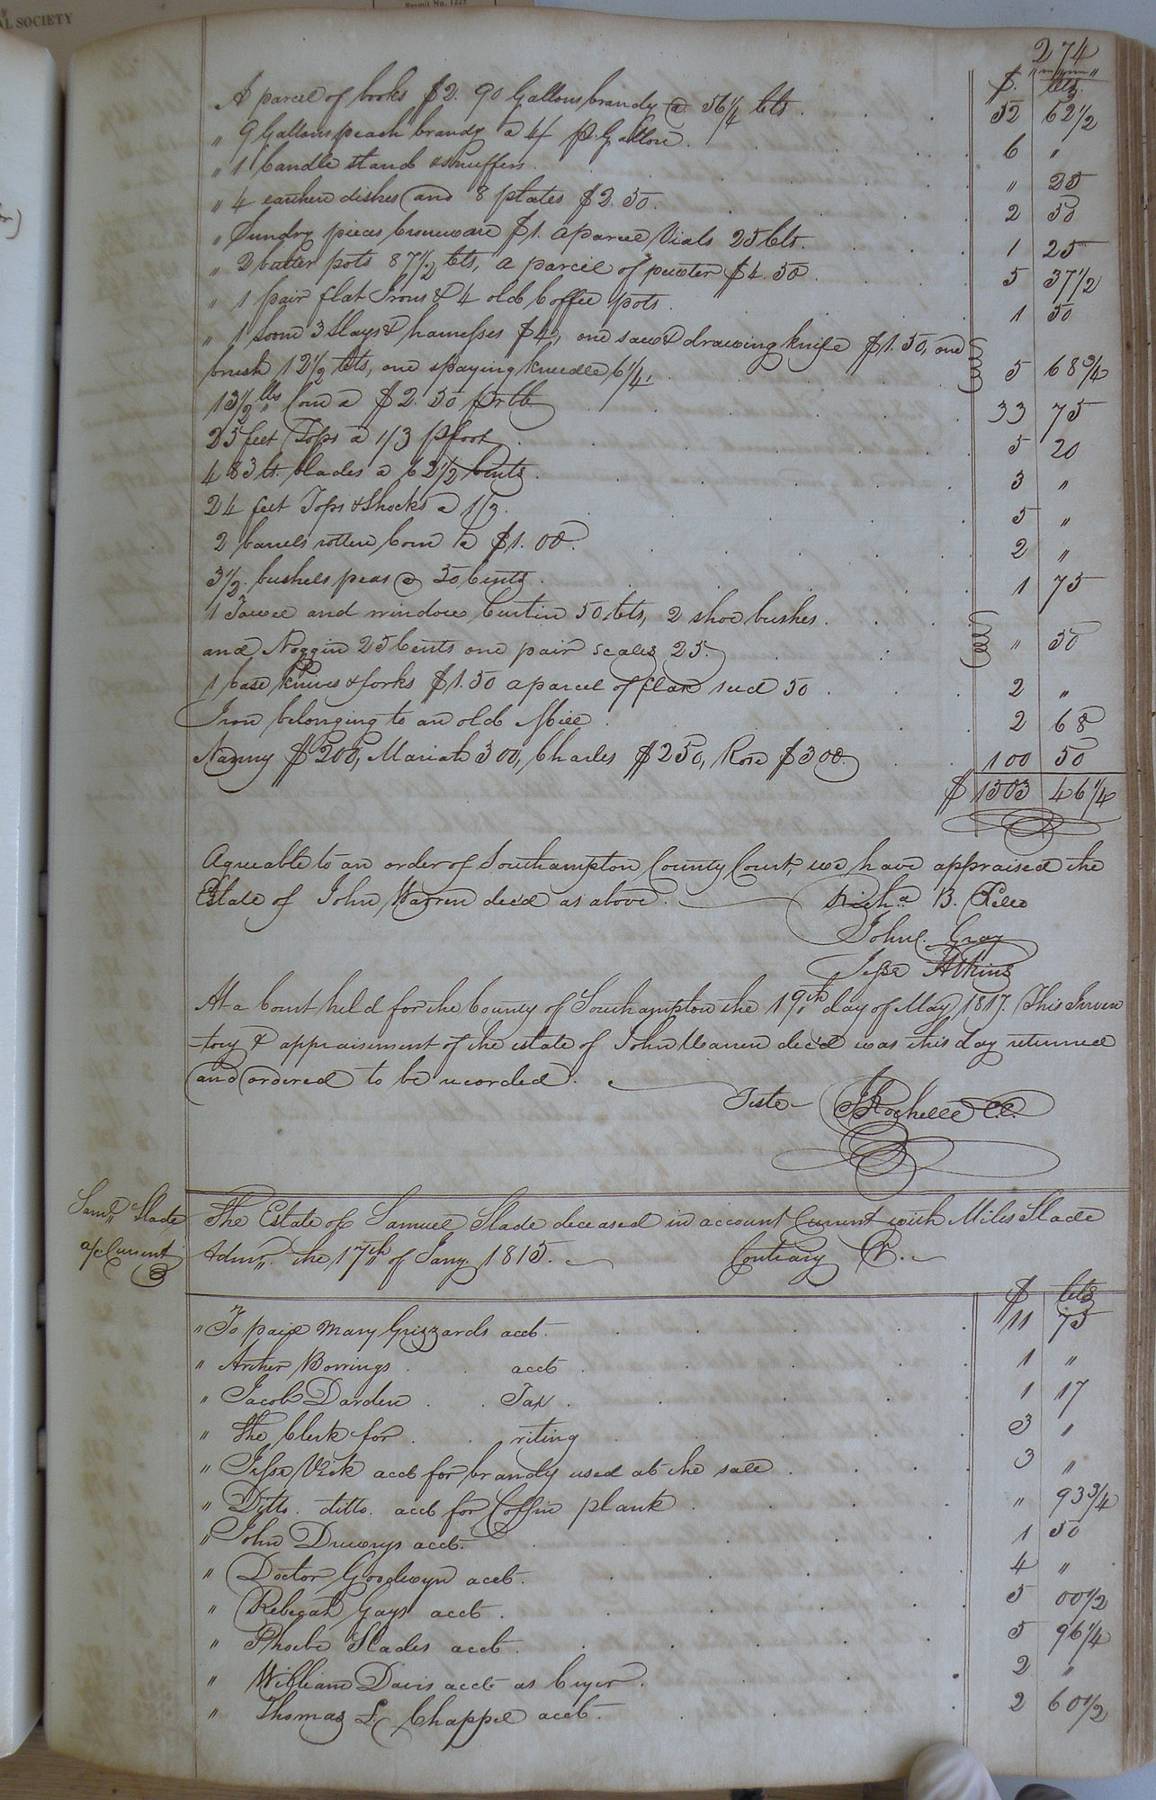 AL SOCIETY
Permit No. 1227
274
$. Cts
A parcel of books $2. 90 Gallons brandy @ 56 1/4 Cts. 52 62 1/2
" 9 Gallons peach brandy a 4/ p Gallon. 6 "
" 1 Candle stand & snuffers " 25
" 4 earthen dishes and 8 plates $2.50. 2 50
" Sundry pieces $1. a parcel Vials 25 Cts. 1 25
" 2 butter pots 87 1/2 Cts, a parcel of pewter $4.50. 5 37 1/2
" 1 pair flat Irons & 4 old Coffee pots. 1 50
" 1 loom 3 Slays & harnesses $4, one saw & drawing knife $1.50, one
brush 12 1/2 Cts, one spaying kneedle 6 1/4, 5 68 3/4
13 1/2 bls Corn a $2.50 pr bb 33 75
25 feet Tops a 1/3 p foot 5 20
483 lt. blades a 62 1/2 Cents. 3 "
24 feet Tops & Shocks a 1/3. 5 "
2 barrels rotten Corn a $1.00. 2 "
3 1/2 bushels peas @ 50 Cents. 1 75
1 Towel and window Curtin 50 Cts, 2 shoe bushes.
and Noggin 25 Cents one pair scales 25. " 50
1 Case knives & forks $1.50 a parcel of flax seed 50. 2 "
Iron belonging to an old Mill. 2 68
Nanny $200, Mariah 300, Charles $250, Rose $300. 100 50
$ 1303 46 1/4
Agreeable to an order of Southampton County Court, we have appraised the
Estate of John Warren decd as above. Richd. B.
John Gray
Jesse Atkins
At a Court held for the County of Southampton the 19th day of May 1817. This Inven
-tory & appraisement of the estate of John Warren decd was this day returned
and ordered to be recorded.
Teste J Rochelle C.C.
Saml. Slade
a/c Current
The Estate of Samuel Slade deceased in account Current with Miles Slade
Admr. the 17th of Jany. 1815. Contrary Cr.
$ Cts
" To paid Mary Grizzards acct. 11 75
" Archer Borrings acct 1 "
" Jacob Darden Tax. 1 17
" The Clerk for riting 3 "
" Jesse Vick acct for brandy used at the sale. 3 "
" Ditto. ditto. acct for Coffin plank. " 93 3/4
" John Drewrys acct. 1 50
" Doctor Goodwyn acct. 4 "
" Rebecah Gays acct. 5 00 1/2
" Phoebe Slades acct. 5 96 1/4
" William Davis acct as Cryer. 2 "
" Thomas L. Chappel acct. 2 60 1/2